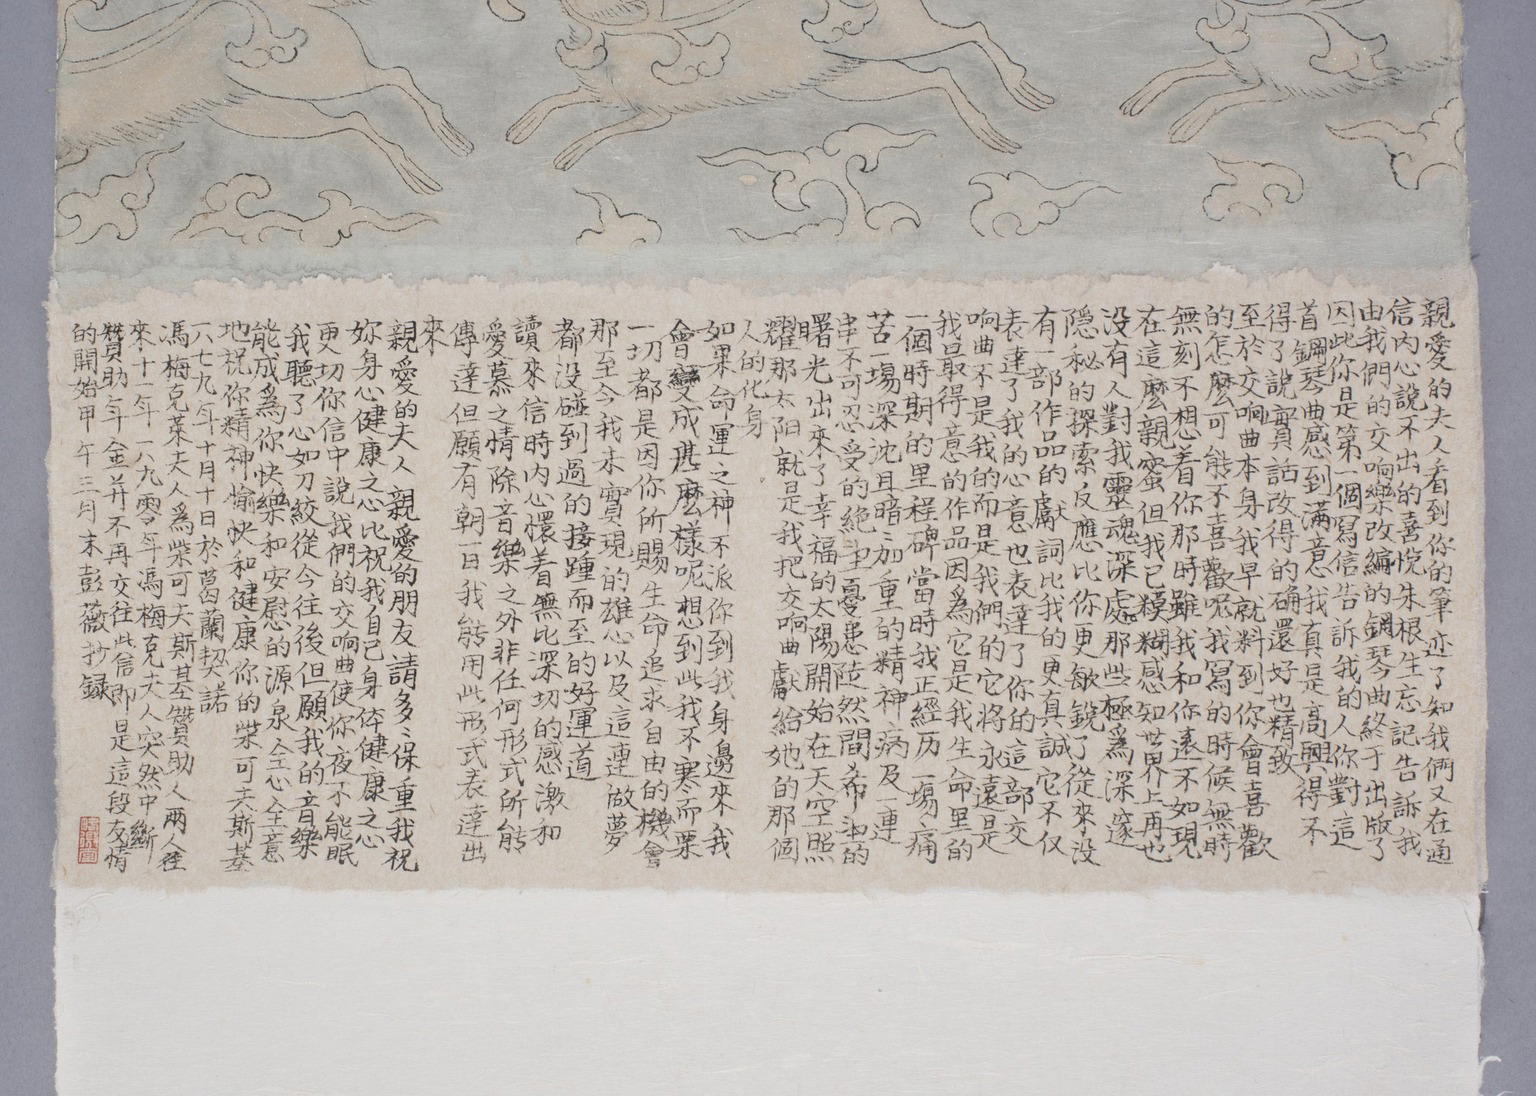 親愛的夫人看到你的筆迹了知我們又在通
信内心說不出的喜悅朱根生忘記告訴我
由我們的交响樂改編的鋼琴曲終于出版了
因此你是第一個寫信告訴我的人你對這
首鋼琴曲感到滿意我真是高興得不
得了說實話改得的确還好也精致
至於交响曲本身我早就料到你會喜歡
的怎麽可能不喜歡呢我寫的時候無時
無刻不想着你那時雖我和你遠不如現
在這麽親蜜但我已模糊感知世界上再也
没有人對我靈魂深處那些極爲深邃
隱秘的探索反應比你更敏銳了從來没
有一部作品的獻詞比我的更真誠它不仅
表達了我的心意也表達了你的這部交
响曲不是我的而是我們的它將永遠是
我最得意的作品因爲它是我生命里的
一個時期的里程碑當時我正經历一塲痛
苦一塲深沈且暗暗加重的精神病及一連
串不可忍受的絶望憂患陡然間希望的
曙光出來了幸福的太陽開始在天空照
耀那太阳就是我把交响曲獻給她的那個
人的化身
如果命運之神不派你到我身邊來我
會變成甚麽樣呢想到此我不寒而栗
一切都是因你所賜生命追求自由的機會
那至今我未實現的雄心以及這連做夢
都没碰到過的接踵而至的好運道
讀來信時内心懷着無比深切的感激和
愛慕之情除音樂之外非任何形式所能
傳達但願有朝一日我能用此形式表達出
來
親愛的夫人親愛的朋友請多多保重我祝
妳身心健康之心比祝我自己身体健康之心
更切你信中說我們的交响曲使你夜不能眠
我聽了心如刀絞從今往後但願我的音樂
能成爲你快樂和安慰的源泉全心全意
地祝你精神愉快和健康你的柴可夫斯基
一八七九年十月十日於葛蘭契諾
馮梅克夫人爲柴可夫斯基贊助人兩人往
來十一年一八九零年馮梅克夫人突然中斷
贊助年金并不再交往此信即是這段友情
的開始甲午三月末彭薇抄録